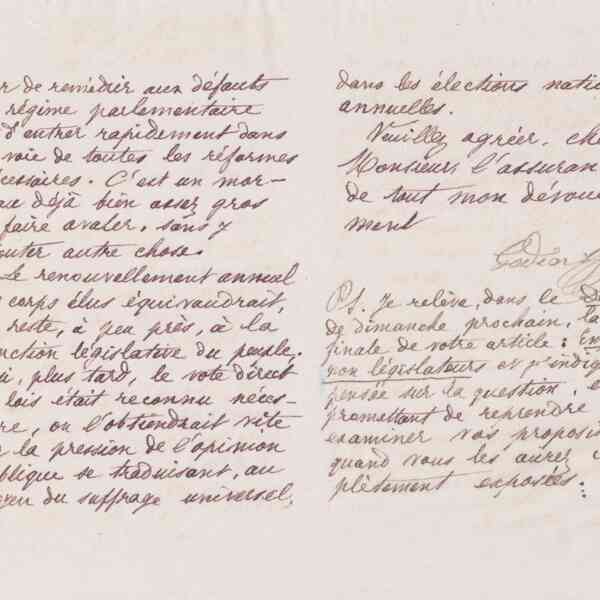 r de remédier aux défauts
régime parlementaire
d'entrer rapidement dans
voie de toutes les réformes
cessaires. C'est un mor-
au déjà bien assez gros
faire avaler, sans y
outer autre chose.
Le renouvellement annuel
corps élus équivaudrait,
reste, à peu près, à la
nction législative du peuple.
i, plus tard, le vote direct
lois était reconnu néces-
re, on l'obtiendrait vite
la pression de l'opinion
blique se traduisant, au
yen du suffrage universel,
dans les élections natio
annuelles.
Veuillez agréer, che
Monsieur, l'assuran
de tout mon dévoue
ment
Godin
PS. Je relève, dans le
de dimanche prochain, la
finale de votre article :
non législateurs et j'indiq
pensée sur la question,
promettant de reprendre
examiner vos proposi
quand vous les aurez
plètement exposées.